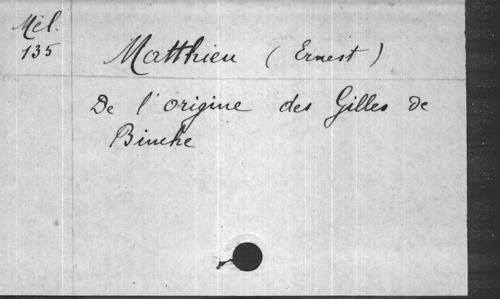 Mél.
135
Matthieu (Ernest)
De l'origine des Gilles de
Binche